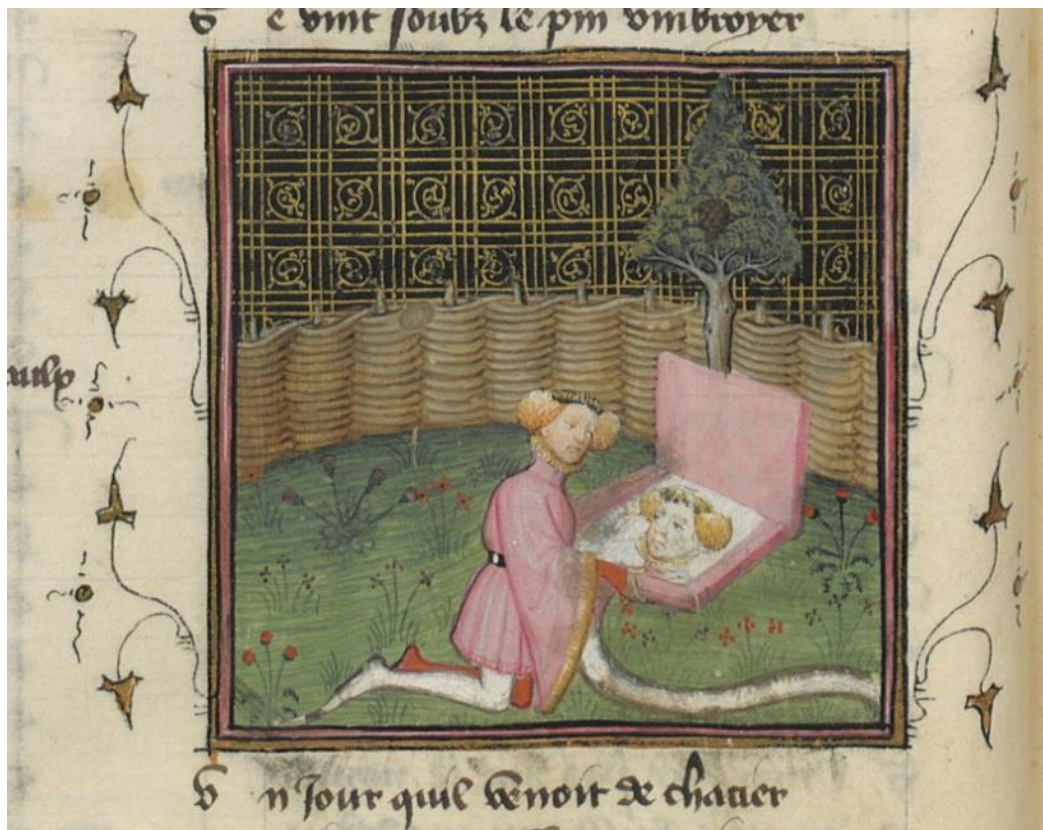 S e vint soubz le pin vmbroyer
V n Jour quil venoit de chacier